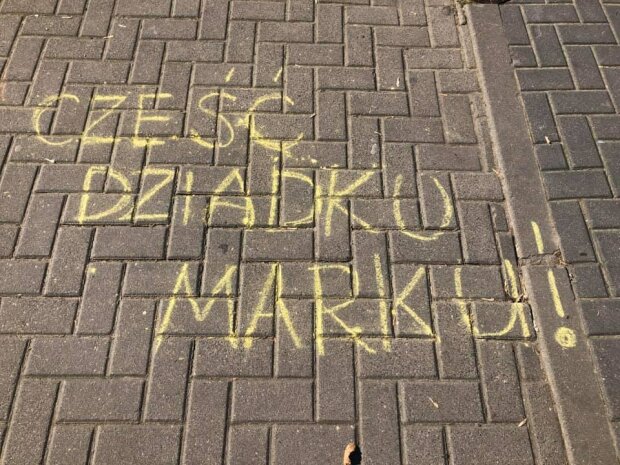 CZEŚĆ
DZIADKU
MARKU!